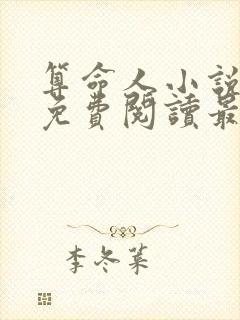 算命人小說
免費閱讀最
李冬葉